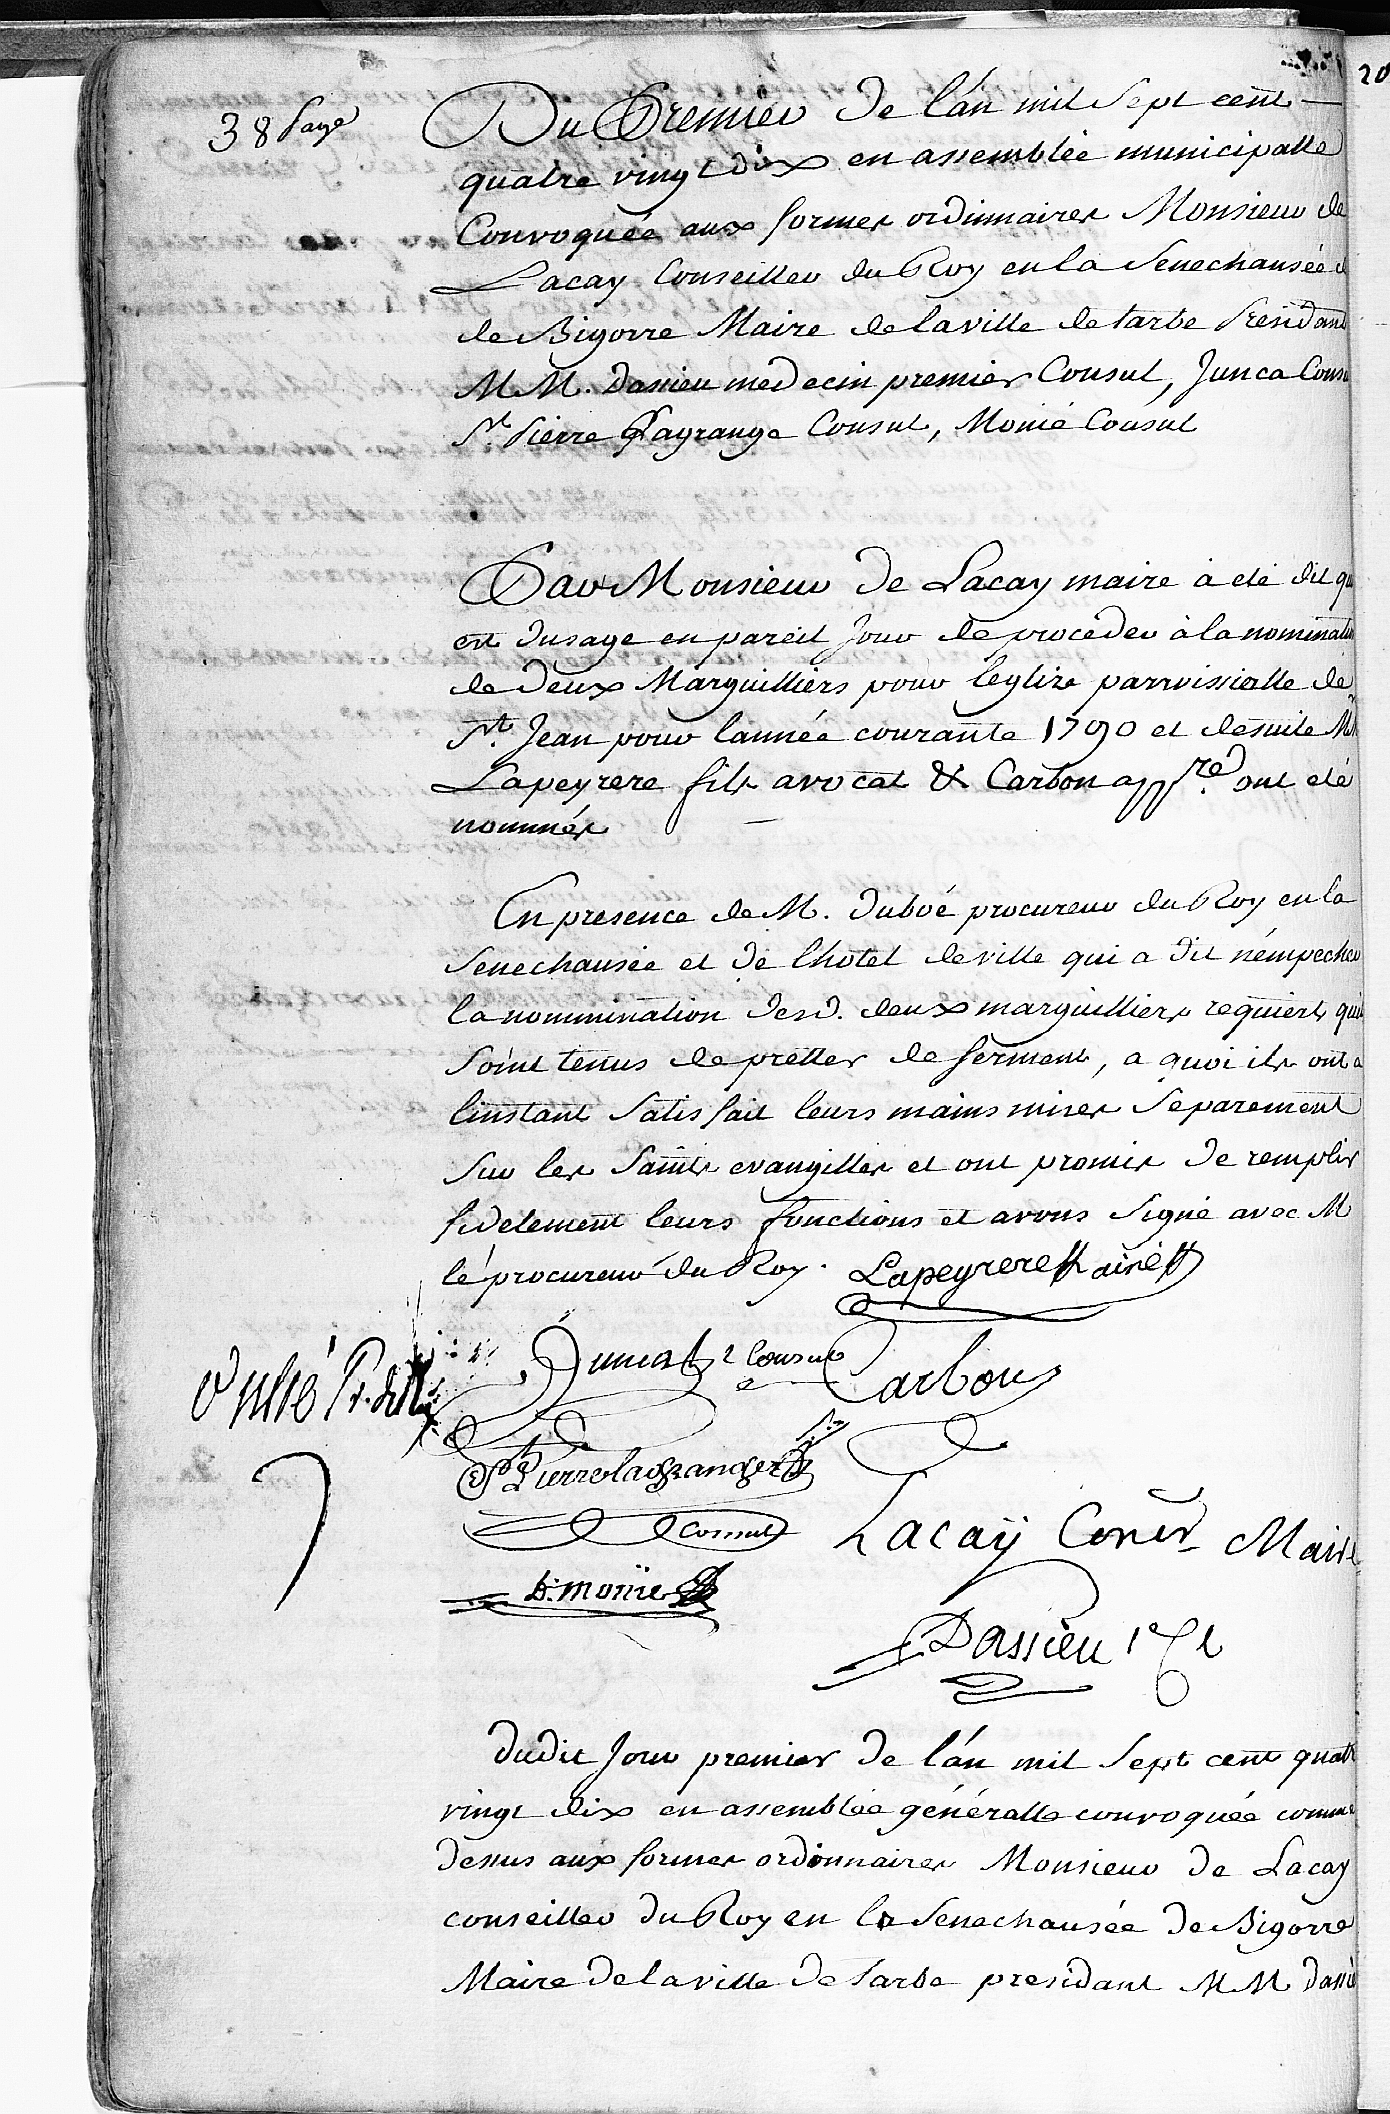 38 Page
20
Du Premier de l'an mil sept cent
quatre vingt dix en assemblée municipalle
Convoquée aux formes ordinnaires Monsieur de
Lacay Conseiller du Roy en la Senechausée
de Bigorre Maire de la ville de tarbe Presidant
M M. dassieu medecin premier Consul, Junca Consu
St. Pierre Lagrange Consul, Monié Consul
Par Monsieur de Lacay maire à eté dit qu
est dusage en pareil Jour de proceder à la nominati
de deux Marguilliers pour leglize parroissialle de
St. Jean pour lannée courante 1790 et desuite
Lapeyrere fils avocat & Carbon appre. ont eté
nommés
En presence de M. duboé procureur du Roy en la
Senechausée et de lhotel de ville qui a dit n'empecher
la nommination desd. deux marguilliers requiert qui
soint tenus de pretter de serment, a quoi ils ont a
linstant satisfait leurs mains mises separement
sur les saints evangilles et ont promis de remplir
fidelement leurs fonctions et avons signé avec M
le procureur du Roy. Lapeyrere ainé
Junca 2 Consul Carbon
St Pierre lagrange
Consul Lacaÿ Coner Maire
monie
Dassieu 1er
dudit Jour premier de l'an mil sept cent quatr
vingt dix en assemblée généralle convoquée comme
dessus aux formes ordonnaires Monsieur de Lacay
conseiller du Roy en la Senechausée de Bigorre
Maire de la ville de tarbe presidant M M dassie